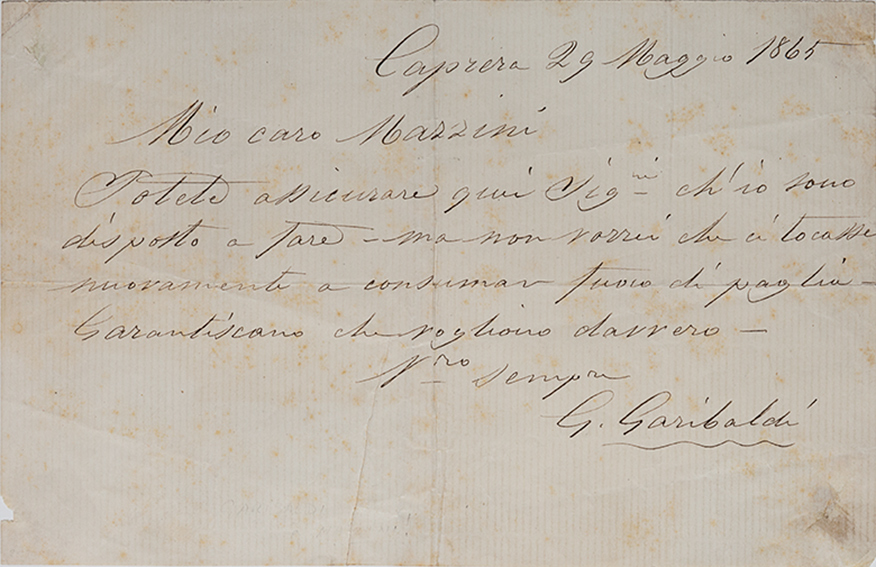 Caprera 29 Maggio 1865
Mio caro Mazzini
Potete assicurare quei Sig.ni ch'io sono
disposto a fare – ma non vorrei che ci tocasse
nuovamente a consumar fuoco di paglia –
Garantiscano che vogliono davvero –
V.ro sempre
G. Garibaldi